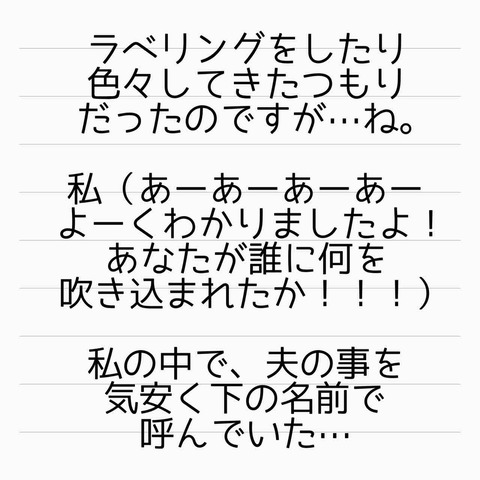 ラベリングをしたり
色々してきたつもり
だったのですが…ね。
私（あーあーあーあー
よーくわかりましたよ！
あなたが誰に何を
吹き込まれたか！！！）
私の中で、夫の事を
気安く下の名前で
呼んでいた…